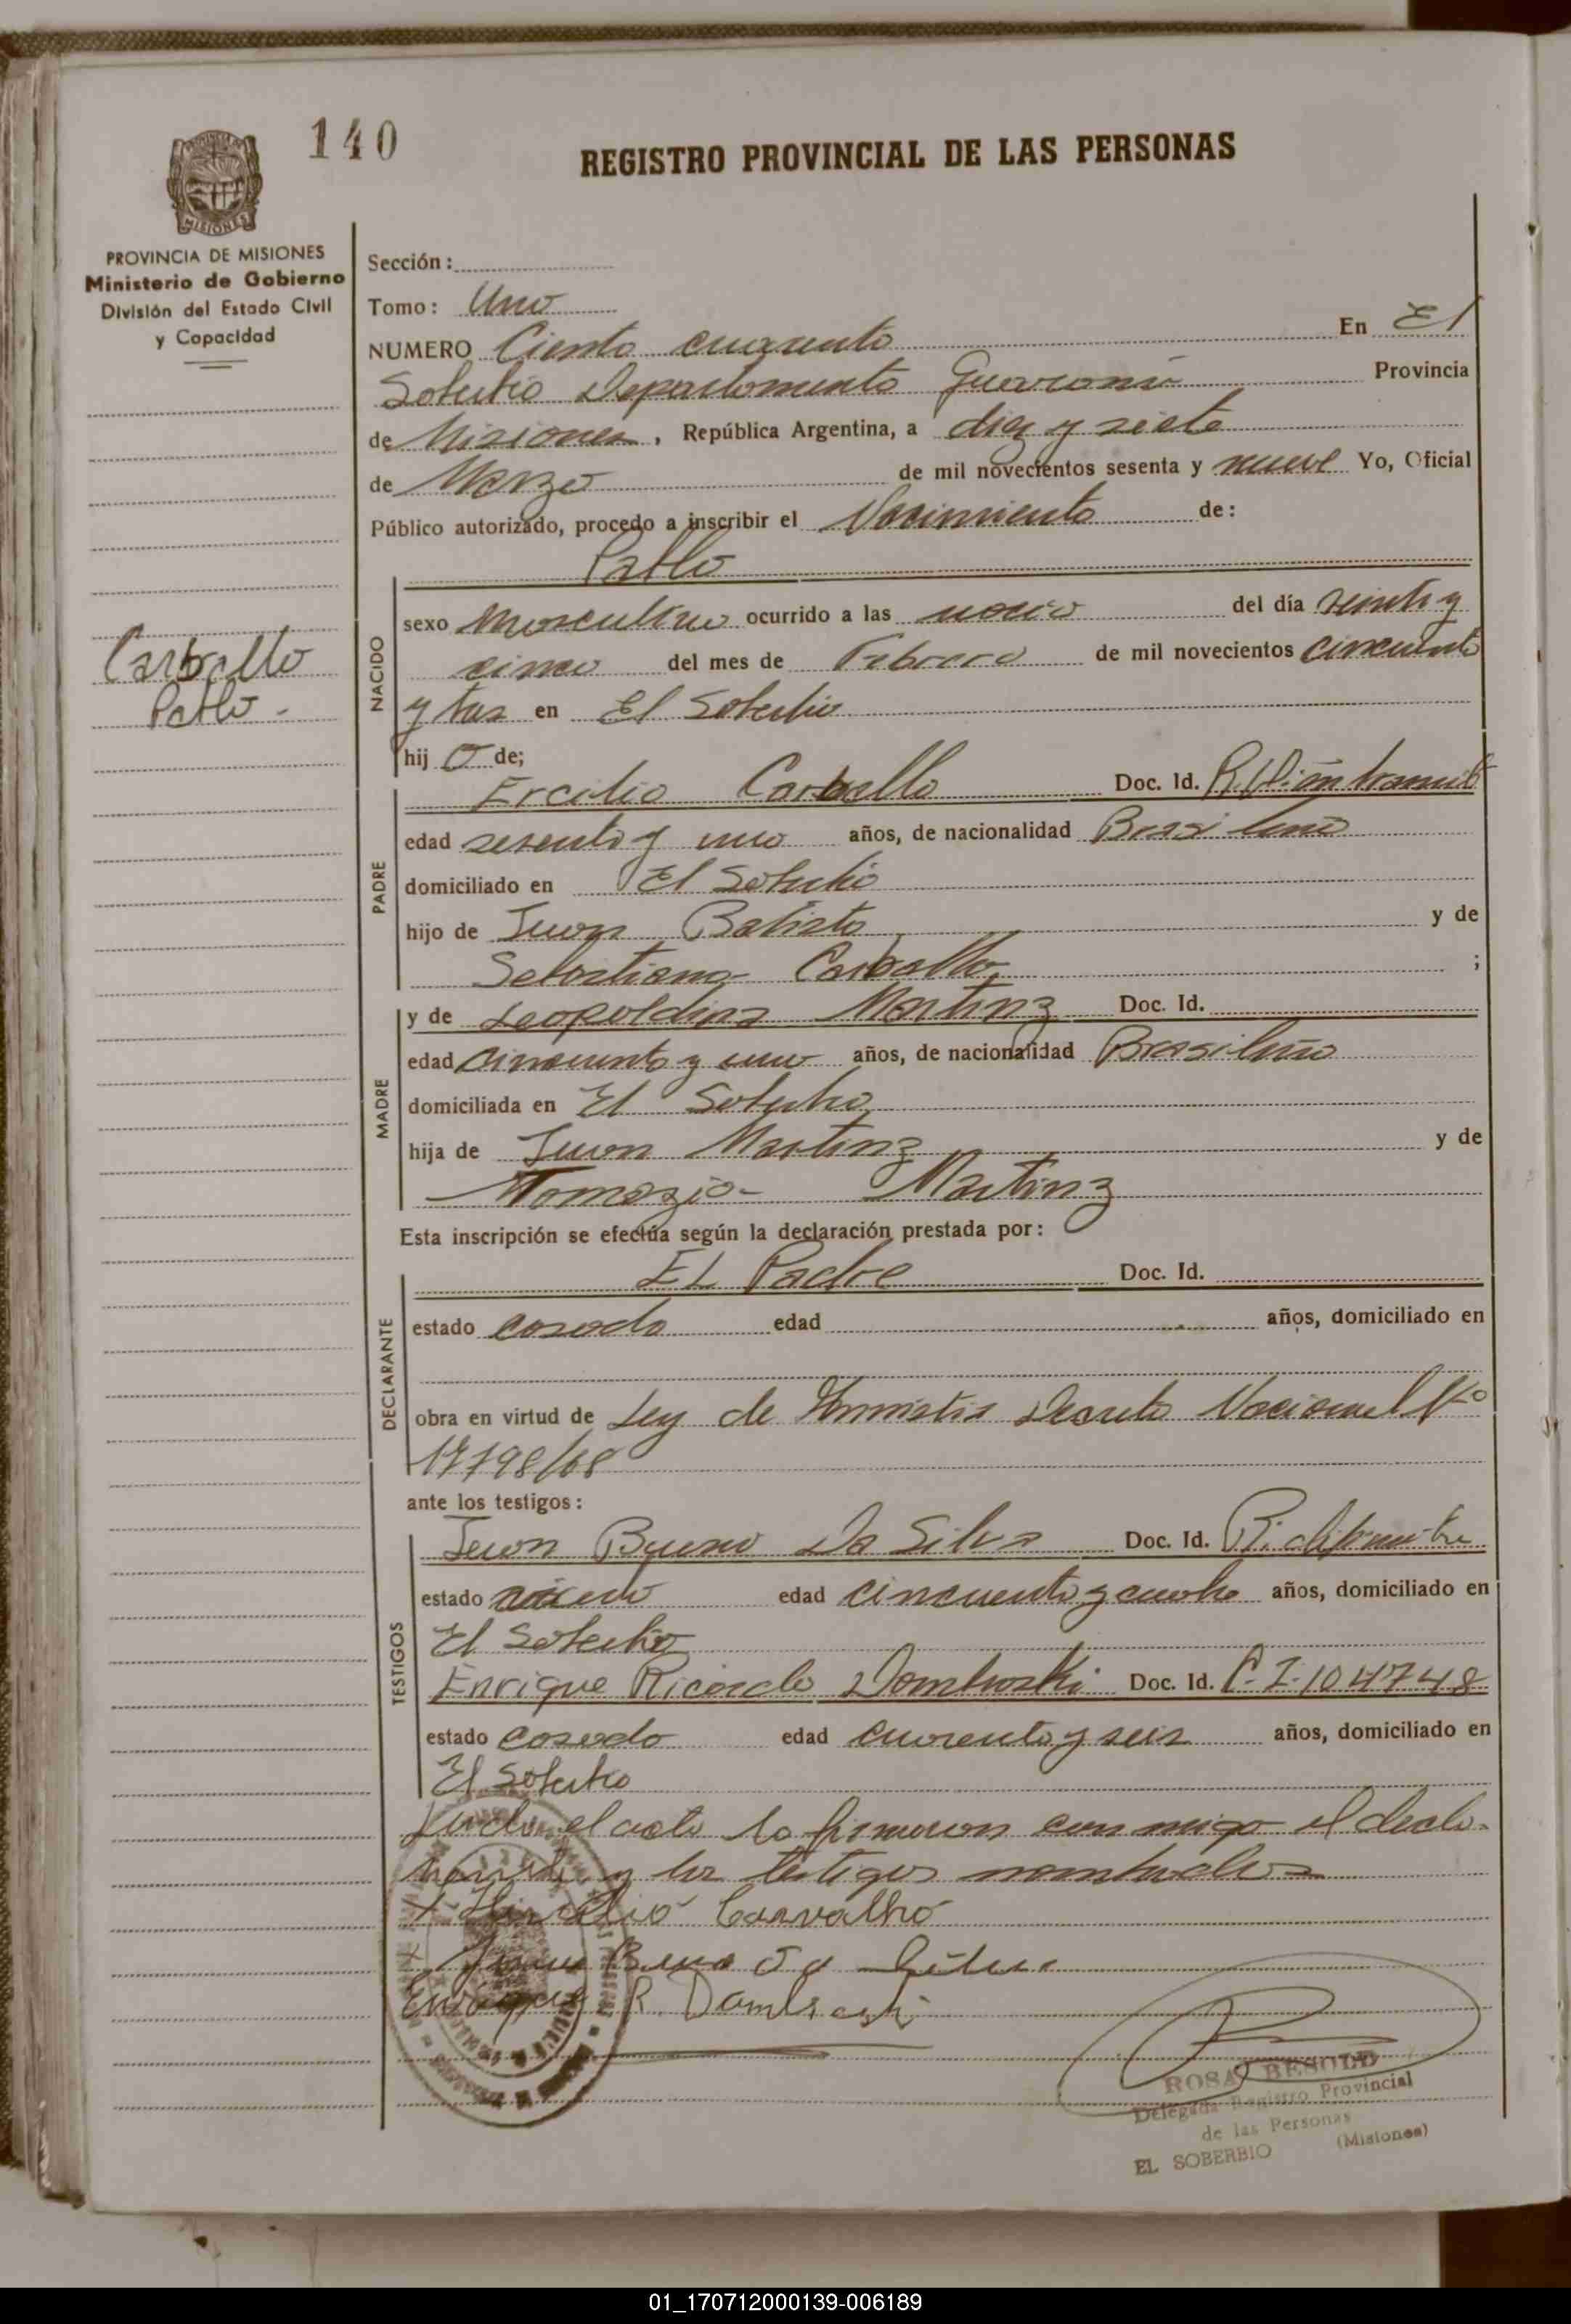 140
REGISTRO PROVINCIAL DE LAS PERSONAS
MISIONES
PROVINCIA DE MISIONES
Ministerio de Gobierno
División del Estado Civil
y Capacidad
Carballo
Pablo -
Sección:
Tomo: Uno
NUMERO Ciento cuarenta En El
Soberbio Departamento Guarani Provincia
de Misiones, República Argentina, a diez y siete
de Marzo de mil novecientos sesenta y nueve Yo, Oficial
Público autorizado, procedo a inscribir el Nacimiento de:
Pablo
NACIDO
sexo Masculino ocurrido a las del día veinte y
cinco del mes de Febrero de mil novecientos cincuenta
y tres en El Soberbio
hij o de;
PADRE
Ercilio Carballo Doc. Id.
edad sesenta y uno años, de nacionalidad Brasileño
domiciliado en El Soberbio
hijo de Juan Batista y de
Sebastiana Carballo ;
MADRE
y de Leopoldina Martinz Doc. Id.
edad cincuenta y uno años, de nacionalidad Brasileño
domiciliada en El Soberbio
hija de Juan Martinz y de
Tomazia - Martinz
Esta inscripción se efectúa según la declaración prestada por:
DECLARANTE
EL Padre Doc. Id.
estado casado edad años, domiciliado en
obra en virtud de Ley de Amnistia Decreto Nacional No
17798/68
ante los testigos:
TESTIGOS
Juan Bueno Da Silva Doc. Id.
estado edad cincuenta y años, domiciliado en
El Soberbio
Enrique Ricardo Dombroski Doc. Id. C.I. 104748
estado casado edad cuarenta y seis años, domiciliado en
El Soberbio
el acta la firmaron con migo el decla-
y los testigos nombrados
Carvalho
Bueno da Silva
Enrique R. Dombroski
ROSA BESOLD
Delegada Registro Provincial
de las Personas
EL SOBERBIO (Misiones)
01_170712000139-006189